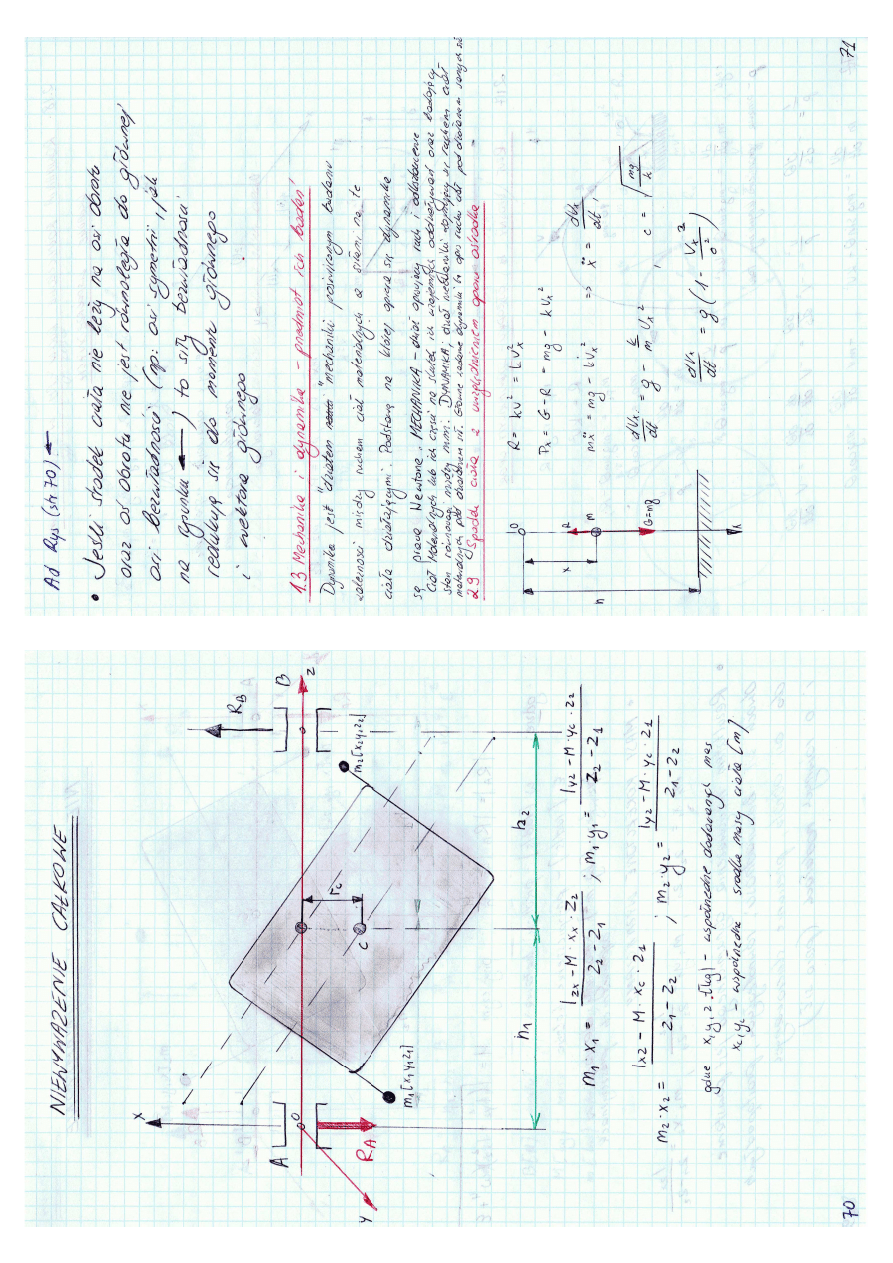 NIEWYWAŻENIE CAŁKOWE
x
A
O
y
R_A
R_B
B
z
m₁[x₁y₁z₁]
m₂[x₂y₂z₂]
r_c
C
h₁
h₂
m₁·x₁ = (I_zx - M·x_x·z₂)/(z₂ - z₁) ; m₁·y₁ = (I_yz - M·y_c·z₂)/(z₂ - z₁)
m₂·x₂ = (I_xz - M·x_c·z₁)/(z₁ - z₂) ; m₂·y₂ = (I_yz - M·y_c·z₁)/(z₁ - z₂)
gdzie x,y,z [kg] - współrzędne dodawanych mas
x_c,y_c - współrzędne środka masy ciała [m]
70
Ad Rys (str 70)
• Jeśli środek ciała nie leży na osi obrotu
oraz oś obrotu nie jest równoległa do głównej
osi bezwładności (np: osi symetrii, jak
na rysunku ←) to siły bezwładności
redukują się do momentu głównego
i wektora głównego
1.3 Mechanika i dynamika - przedmiot ich badań
Dynamika jest działem mechaniki poświęconym badaniu
zależności między ruchem ciał materialnych a siłami na te
ciała działającymi. Podstawą na której opiera się dynamika
są prawa Newtona. MECHANIKA - dział opisujący ruch i odkształcenie
ciał materialnych lub ich części na skutek ich wzajemnych oddziaływań oraz badający
stan równowagi między nimi. DYNAMIKA, dział mechaniki zajmujący się ruchem ciał
materialnych pod działaniem sił. Główne zadanie dynamiki to opis ruchu ciał pod działaniem
29 Spadek ciała z uwzględnieniem oporu ośrodka
O
R
m
G=mg
x
h
x
R = kv² = kv_x²
P_x = G - R = mg - kv_x²
mẍ = mg - kv_x² => ẍ = dv_x/dt,
dv_x/dt = g - k/m v_x² , c = √(mg/k)
dv_x/dt = g(1 - v_x²/c²)
71